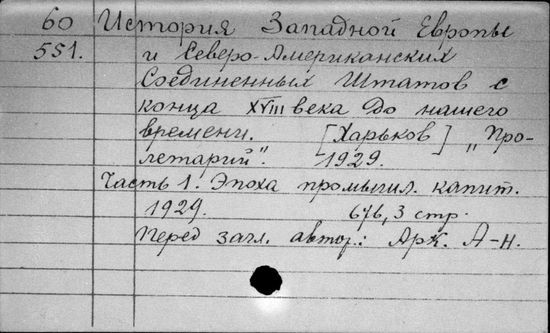 60 История Западной Европы
551. и Северо-Американских
Соединенных Штатов с
конца XVIII века до нашего
времени. [Харьков] „Про-
летарий“. 1929.
Часть 1. Эпоха промышл. капит.
1929. 676, 3 стр.
Перед загл. автор.: Арк. А-н.